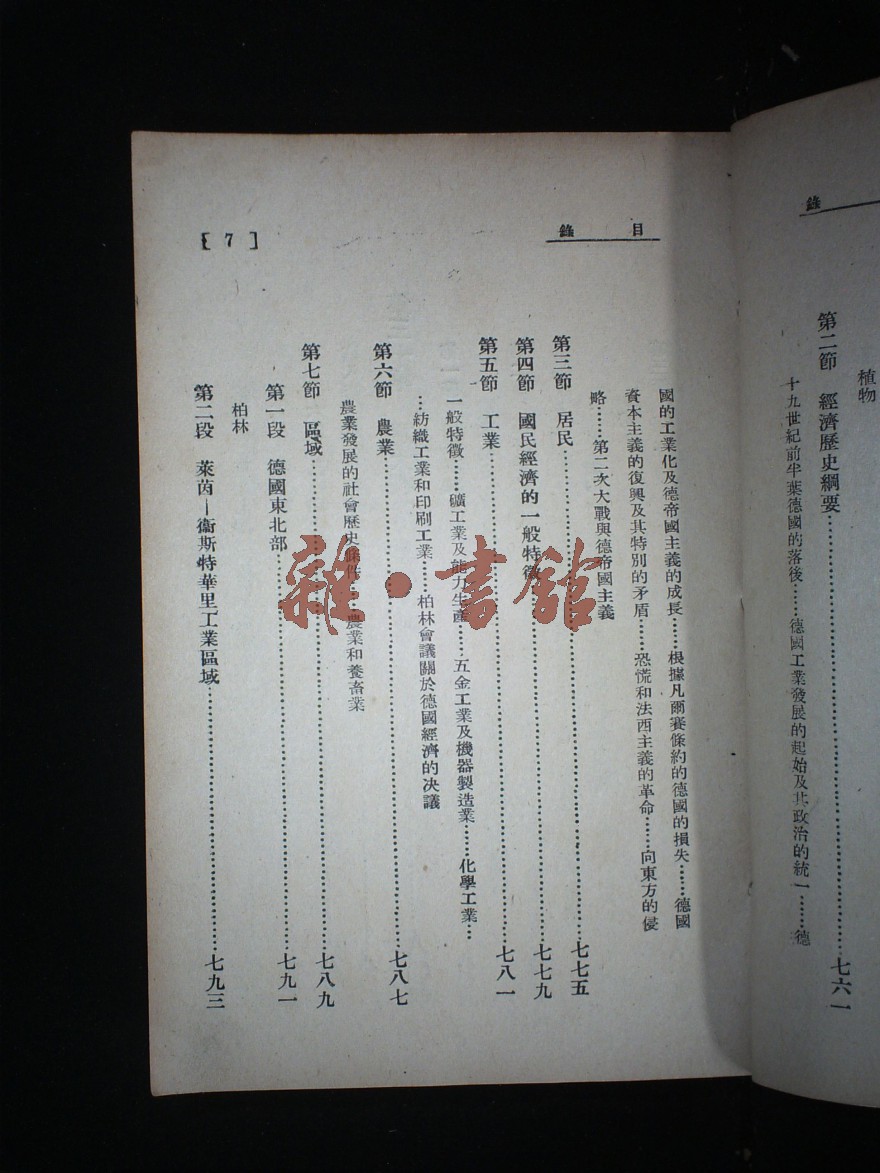 錄
植物
第二節 經濟歷史綱要……七六一
十九世紀前半葉德國的落後……德國工業發展的起始及其政治的統一……德
目錄
國的工業化及德帝國主義的成長……根據凡爾賽條約的德國的損失……德國
資本主義的復興及其特別的矛盾……恐慌和法西主義的革命……向東方的侵
略……第二次大戰與德帝國主義
第三節 居民……七七五
第四節 國民經濟的一般特徵……七七九
第五節 工業……七八一
一般特徵……礦工業及能力生產……五金工業及機器製造業……化學工業…
…紡織工業和印刷工業……柏林會議關於德國經濟的決議
第六節 農業……七八七
農業發展的社會歷史條件……農業和養畜業
第七節 區域……七八九
第一段 德國東北部……七九一
柏林
第二段 萊茵—衞斯特華里工業區域……七九三
[7]
雜·書館